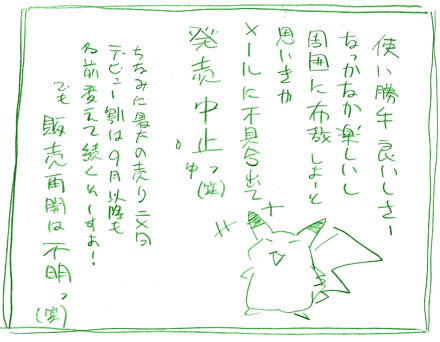 使い勝手良いしさー
なっかなか楽しいし
周囲に布哉しよーと
思いきや
メールに不具合出て
発売中止っ(笑)
中。
ちなみに最大の売り文句
デビュー割は9月以降も
名前変えて続くそーすよ!
でも
販売再開は不明っ
(笑)